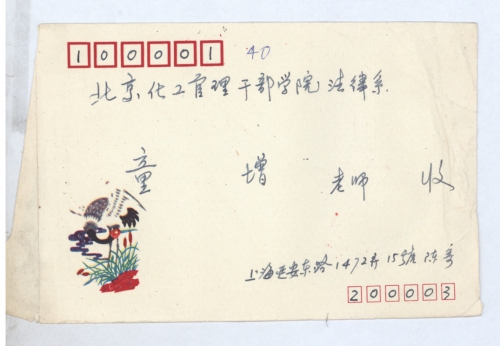 100001 40
北京化工管理干部学院法律系
童增 老师 收
上海延安东路1472弄15号 陈
200003